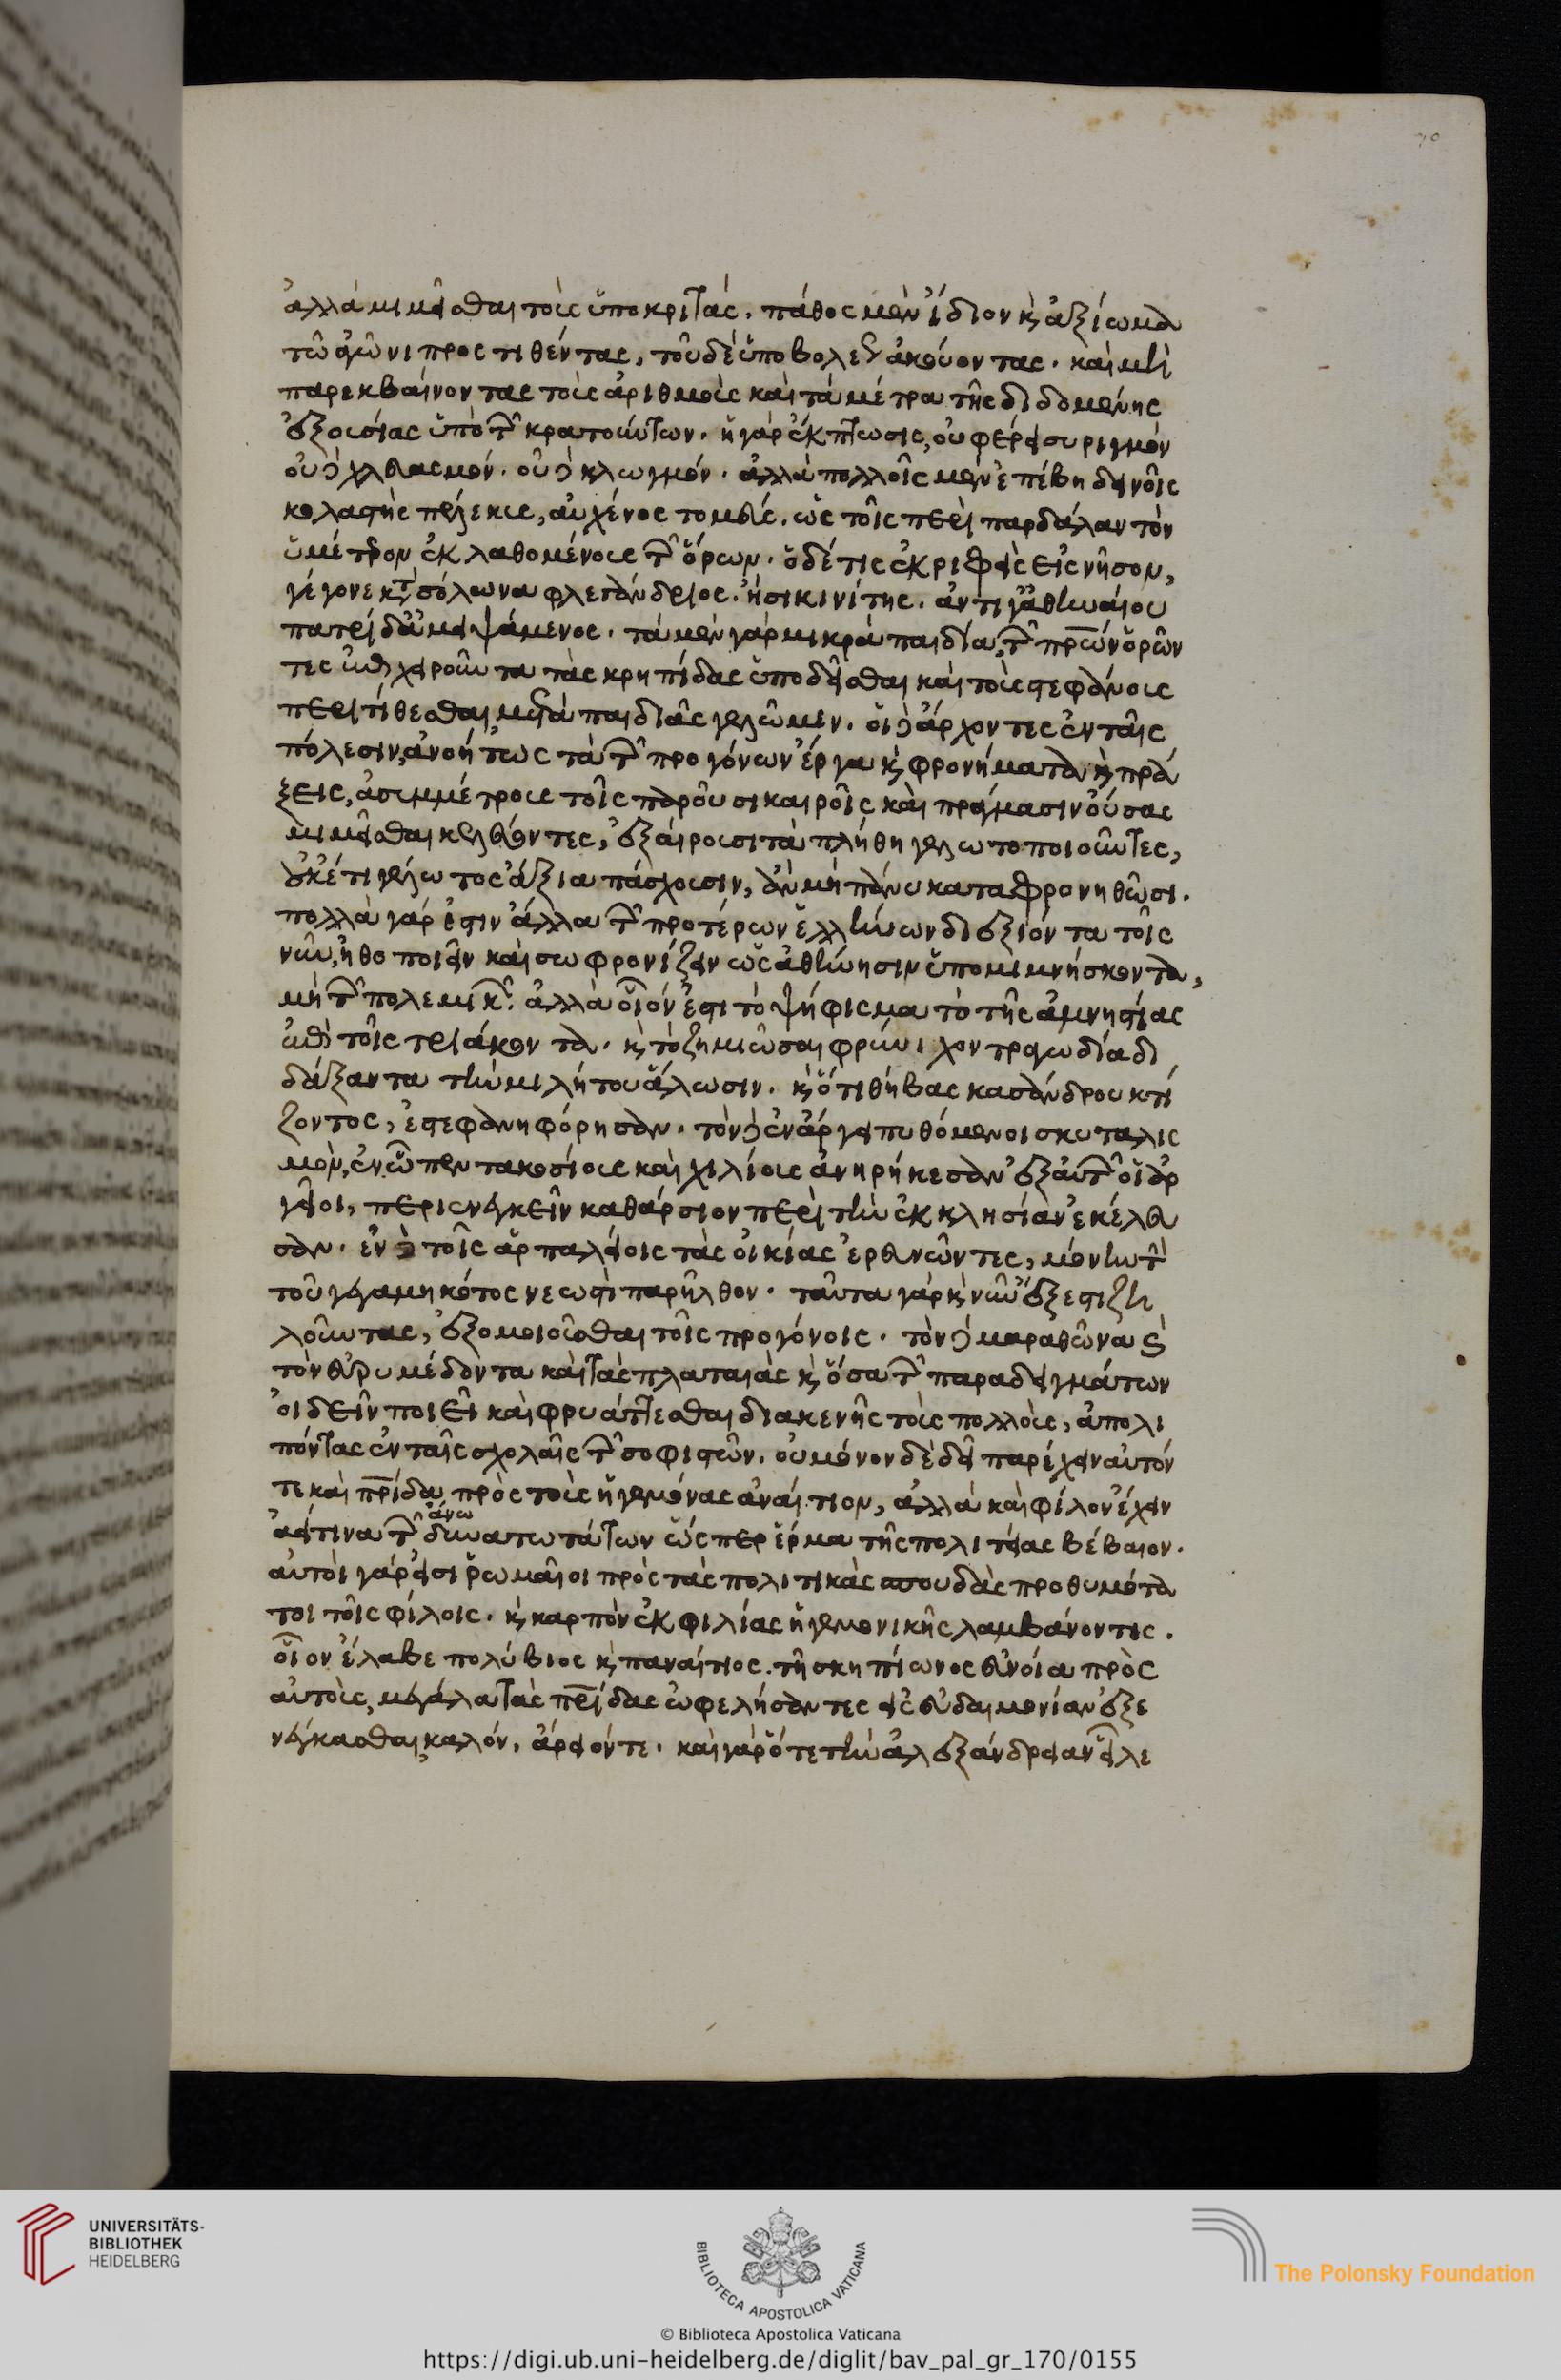 ἀλλὰ μιμεῖσθαι τοὺς ὑποκριτάς. πάθος μὲν ἴδιον κ̀ ἀξίωμα
τῶ ἀγῶνι προς τιθέντας, τοῦ δὲ ὑποβολέως ἀκούοντας. καὶ μὴ
παρεκβαίνοντας τοὺς ἀριθμοὺς καὶ τὰ μέτρα τῆς διδομένης
ἐξουσίας ὑπὸ τῶν κρατούντων. ἡ γὰρ ἔκπτωσις, οὐ φέρει συριγμὸν
οὐδὲ χλευασμόν. οὐδὲ κλωγμόν. ἀλλὰ πολλοῖς μὲν ἐπέβη δεινοῖς
κολαστὴς πέλεκυς, αὐχένος τομεύς. ὡς τοῖς περὶ παρδάλαν τὸν
ὑμέτερον ἐκλαθομένοις τῶν ὅρων. ὁ δέ τις ἐκριφεὶς εἰς νῆσον,
γέγονε κατὰ σόλωνα φλεγάνδριος. ἢ σικινίτης. ἀντί γ' ἀθηναίου
πατρίδ' ἀμειψάμενος. τὰ μὲν γὰρ μικρὰ παιδία, τῶν πατέρων ὁρῶν
τες ἐπιχειροῦντα τὰς κρηπίδας ὑποδεῖσθαι καὶ τοὺς στεφάνους
περιτίθεσθαι μετὰ παιδιᾶς γελῶμεν. οἱ δὲ ἄρχοντες ἐν ταῖς
πόλεσιν, ἀνοήτως τὰ τῶν προγόνων ἔργα κ̀ φρονήματα κ̀ πρά
ξεις, ἀσυμμέτρους τοῖς παροῦσι καιροῖς καὶ πράγμασιν οὔσας
μιμεῖσθαι κελεύοντες, ἐξαίρουσι τὰ πλήθη γελωτοποιοῦντες,
οὐκέτι γέλωτος ἄξια πάσχουσιν, ἂν μὴ πάνυ καταφρονηθῶσι.
πολλὰ γάρ ἐστιν ἄλλα τῶν προτέρων ἑλλήνων διεξιόντα τοῖς
νῦν, ἠθοποιεῖν καὶ σωφρονίζειν ὡς ἀθήνησιν ὑπομιμνήσκοντα,
μὴ τῶν πολεμικῶν. ἀλλὰ οἷόν ἐστι τὸ ψήφισμα τὸ τῆς ἀμνηστίας
ἐπὶ τοῖς τριάκοντα. κ̀ τὸ ζημιῶσαι φρύνιχον τραγωδία δι
δάξαντα τὴν μιλήτου ἅλωσιν. κ̀ ὅτι θήβας κασάνδρου κτί
ζοντος, ἐστεφανηφόρησαν. τὸν δὲ ἐν ἄργει πυθόμενοι σκυταλισ
μὸν, ἐν ὧ πεντακοσίους καὶ χιλίους ἀνηρήκεσαν ἐξ αὑτῶν οἱ ἀρ
γεῖοι, περιενεγκεῖν καθάρσιον περὶ τὴν ἐκκλησίαν ἐκέλευ
σαν. ἐν δὲ τοῖς ἁρπαλείοις τὰς οἰκίας ἐρευνῶντες, μόνην τὴν
τοῦ γεγαμηκότος νεωστὶ παρῆλθον. ταῦτα γὰρ κ̀ νῦν ἔξεστι ζη
λοῦντας, ἐξομοιοῦσθαι τοῖς προγόνοις. τὸν δὲ μαραθῶνα καὶ
τὸν εὐρυμέδοντα καὶ τὰς πλαταιὰς κ̀ ὅσα τῶν παραδειγμάτων
οἰδεῖν ποιεῖ καὶ φρυάττεσθαι διακενῆς τοὺς πολλοὺς, ἀπολι
πόντας ἐν ταῖς σχολαῖς τῶν σοφιστῶν. οὐ μόνον δὲ δεῖ παρέχειν αὐτόν
τε καὶ πατρίδα πρὸς τοὺς ἡγεμόνας ἀναίτιον, ἀλλὰ καὶ φίλον ἔχειν
ἀεί τινα τῶν ἄνω δυνατωτάτων ὥς περ ἕρμα τῆς πολιτείας βέβαιον.
αὐτοὶ γάρ εἰσι ῥωμαῖοι πρὸς τὰς πολιτικὰς σπουδὰς προθυμότα
τοι τοῖς φίλοις. κ̀ καρπὸν ἐκ φιλίας ἡγεμονικῆς λαμβάνοντες.
οἷον ἔλαβε πολύβιος κ̀ παναίτιος. τῆ σκηπίωνος εὐνοία πρὸς
αὐτοὺς, μεγάλα τὰς πατρίδας ὠφελήσαντες εἰς εὐδαιμονίαν ἐξε
νέγκασθαι, καλόν. ἄρειόν τε. καὶ γὰρ ὅτε τὴν ἀλεξάνδρειαν εἷλε
UNIVERSITÄTS-
BIBLIOTHEK
HEIDELBERG
BIBLIOTECA APOSTOLICA VATICANA
The Polonsky Foundation
© Biblioteca Apostolica Vaticana
https://digi.ub.uni-heidelberg.de/diglit/bav_pal_gr_170/0155